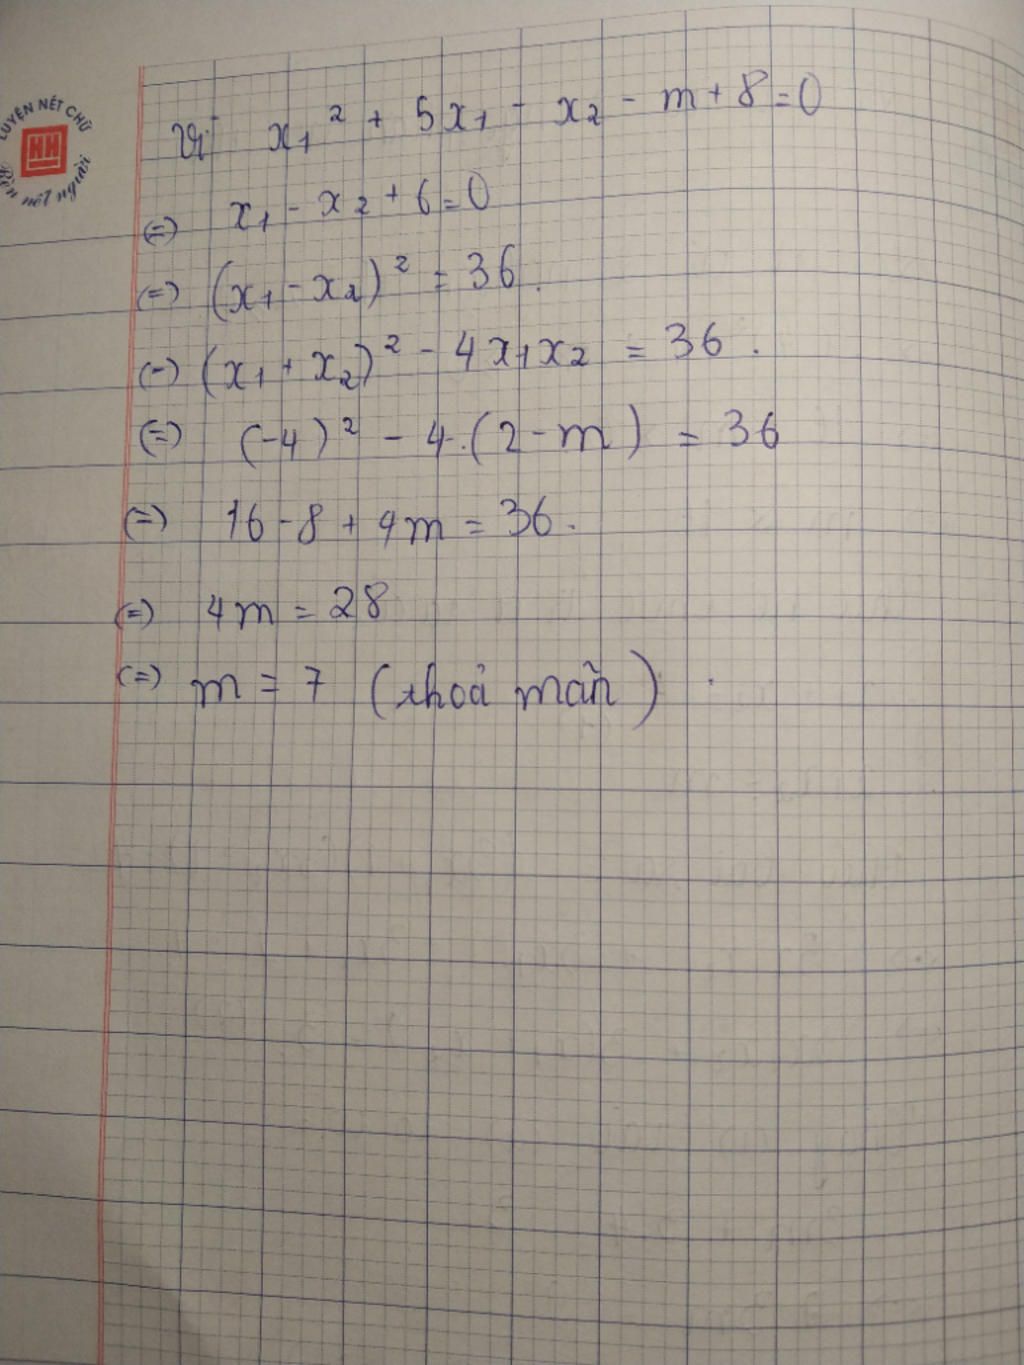 LUYỆN NÉT CHỮ
HH
nết người
Vì x₁² + 5x₁ - x₂ - m + 8 = 0
(=) x₁ - x₂ + 6 = 0
(=) (x₁ - x₂)² = 36.
(=) (x₁ + x₂)² - 4x₁x₂ = 36.
(=) (-4)² - 4.(2 - m) = 36
(=) 16 - 8 + 4m = 36.
(=) 4m = 28
(=) m = 7 (thoả mãn).